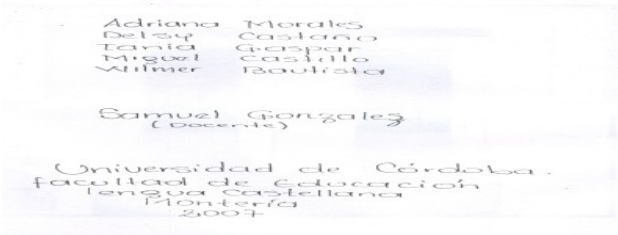 Adriana Morales
Delsy Castaño
Tania Gaspar
Miguel Castillo
Wilmer Bautista
Samuel Gonzales
(Docente)
Universidad de Córdoba.
facultad de Educación
lengua Castellana
Montería
2007